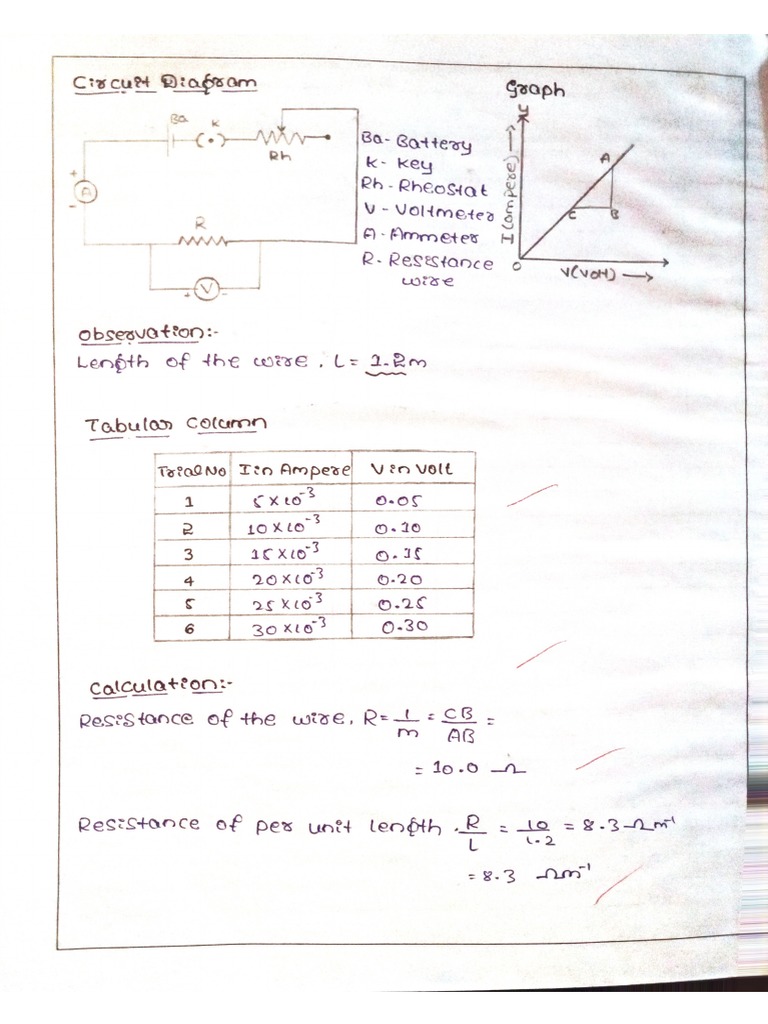 Circuit Diagram
Graph
Ba
K
Rh
A
+
-
R
V
+
-
Ba - Battery
K - Key
Rh - Rheostat
V - Voltmeter
A - Ammeter
R - Resistance
wire
Y
I (ampere) →
A
C
B
O
V(Volt) →
Observation:-
Length of the wire, L = 1.2m
Tabular Column
Trial No I in Ampere V in Volt
1 5 × 10⁻³ 0.05
2 10 × 10⁻³ 0.10
3 15 × 10⁻³ 0.15
4 20 × 10⁻³ 0.20
5 25 × 10⁻³ 0.25
6 30 × 10⁻³ 0.30
Calculation:-
Resistance of the wire, R = 1/m = CB/AB =
= 10.0 Ω
Resistance of per unit length . R/L = 10/1.2 = 8.3 Ωm⁻¹
= 8.3 Ωm⁻¹